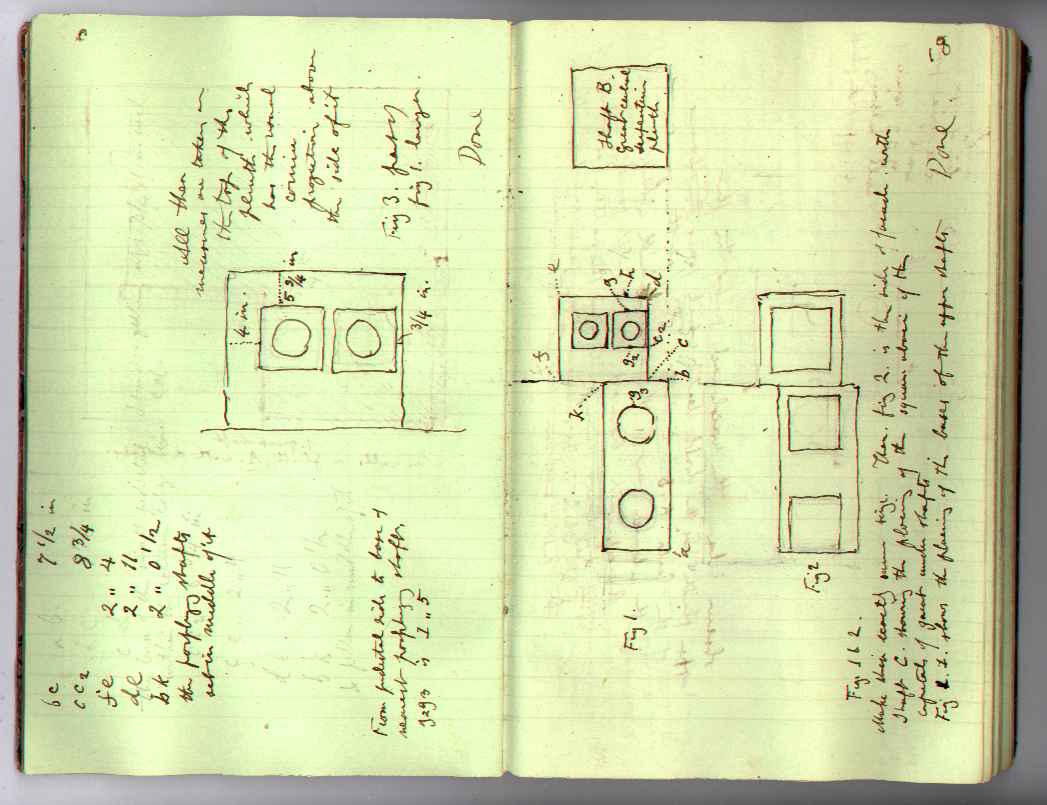 bc 7 1/2 in
cc2 8 3/4
fe 2 " 4
de 2 " 11
bk 2 " 0 1/2
the porphyry shafts
set in middle of it
From pedestal side to base of
nearest porphyry shafts
is 1 " 5
All these
measures are taken on
the top of the
plinth which
has the usual
cornice
projection above
the side of it
4 in.
5 3/4 in
3/4 in.
Fig 3. part of
fig 1. larger
Done
Shaft B.
Great
serpentine
plinth
e
f
3
h
d
g2
c2
c
b
k
g3
Fig 1.
Fig 2
Figs 1 & 2.
Make these exactly same size. Then. Fig 2. is the side of facade with
Shaft C. showing the placing of the square abaci of the
capitals of great under shafts
Fig 1. shows the placing of the bases of the upper shafts
Done.